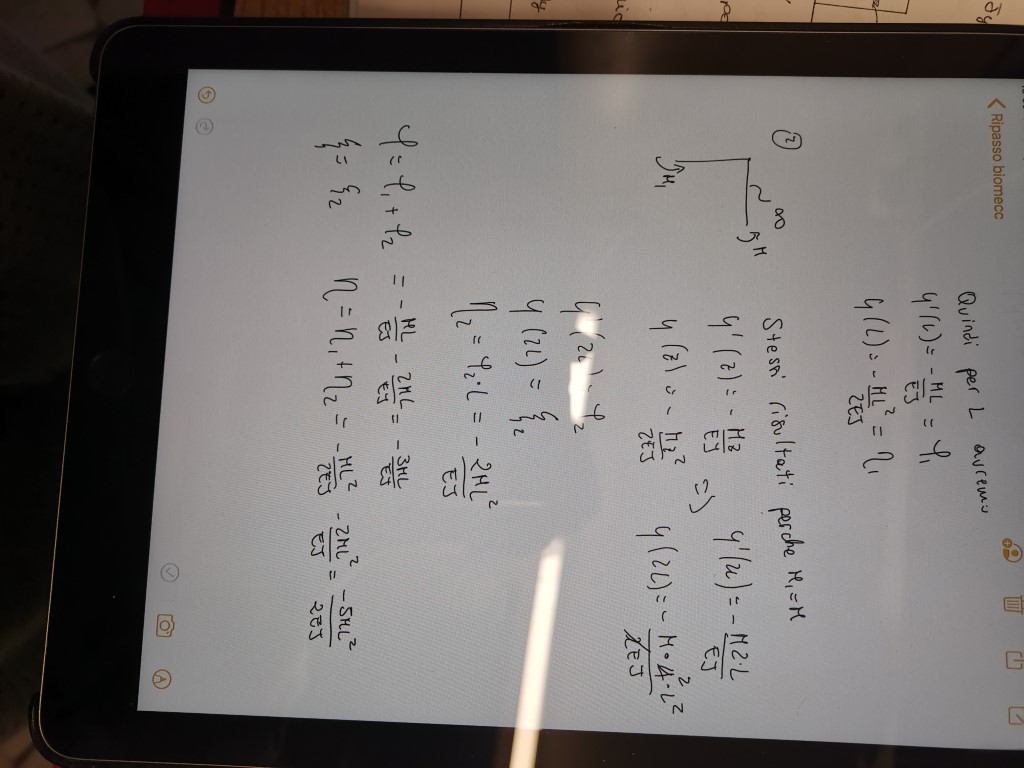 Ripasso biomecc
Quindi per L avremo
y'(L) = -ML/EJ = φ₁
y(L) = -ML²/2EJ = η₁
②
∞
M
M₁
Stessi risultati perche M₁ = M
y'(z) = -Mz/EJ => y'(2L) = -M2·L/EJ
y(z) = -Mz²/2EJ y(2L) = -M·4²·L²/2EJ
y'(2L) = φ₂
y(2L) = ξ₂
η₂ = φ₂·L = -2ML²/EJ
φ = φ₁ + φ₂ = -ML/EJ - 2ML/EJ = -3ML/EJ
ξ = ξ₂ η = η₁ + η₂ = -ML²/2EJ - 2ML²/EJ = -5ML²/2EJ